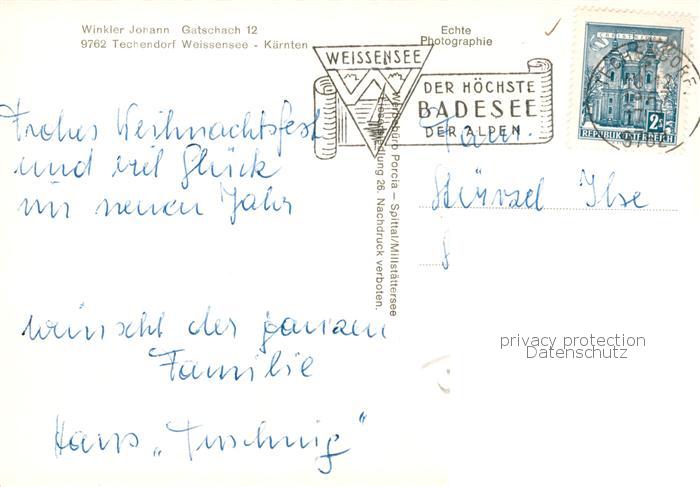 Winkler Johann Gatschach 12
9762 Techendorf Weissensee - Kärnten
Echte
Photographie
WEISSENSEE
DER HÖCHSTE
BADESEE
DER ALPEN
2
REPUBLIK ÖSTERREICH
Frohes Weihnachtsfest
und viel Glück
im neuen Jahr
wünscht der ganzen
Familie
Haus
Werbebüro Porcia – Spittal/Millstättersee
26. Nachdruck verboten.
Fam.
Stürzel Ilse
privacy protection
Datenschutz